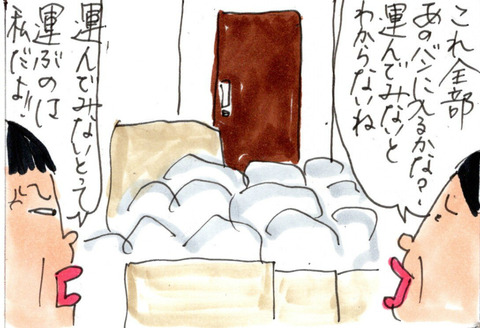 これ全部
あのバンに入るかな?
運んでみないと
わからないね
運んでみないとって
運ぶのは
私だよ!!